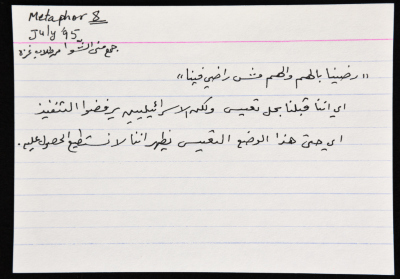 Metaphor 8
July 95
جمع منى الشوا من طلاب غزة
"رضينا بالهم والهم مش راضي فينا"
اي اننا قبلنا بحل تعيس ولكن الاسرائيليين يرفضوا التنفيذ
اي حتى هذا الوضع التعيس يظهر اننا لا نستطيع الحصول عليه.